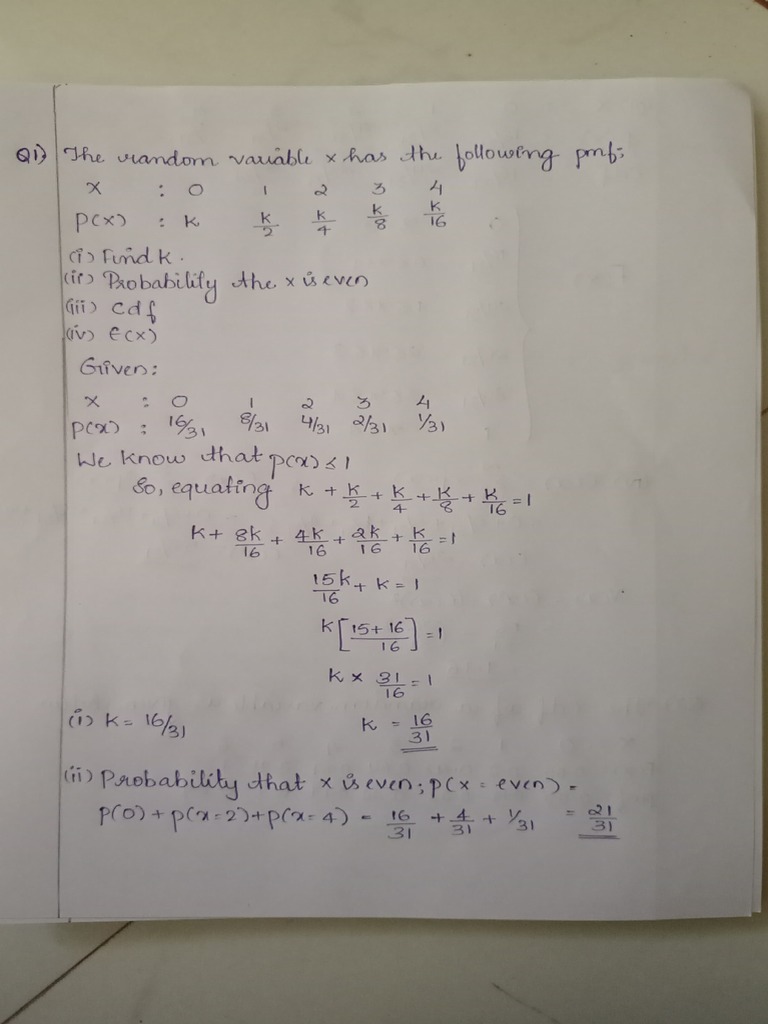 Q1) The random variable x has the following pmf:
x : 0 1 2 3 4
P(x) : k k/2 k/4 k/8 k/16
(i) Find k.
(ii) Probability the x is even
(iii) cdf
(iv) E(x)
Given:
x : 0 1 2 3 4
p(x) : 16/31 8/31 4/31 2/31 1/31
We know that p(x) ≤ 1
So, equating k + k/2 + k/4 + k/8 + k/16 = 1
k + 8k/16 + 4k/16 + 2k/16 + k/16 = 1
15k/16 + k = 1
k [15+16/16] = 1
k × 31/16 = 1
(i) k = 16/31 k = 16/31
(ii) Probability that x is even; p(x = even) =
P(0) + p(x=2) + p(x=4) = 16/31 + 4/31 + 1/31 = 21/31